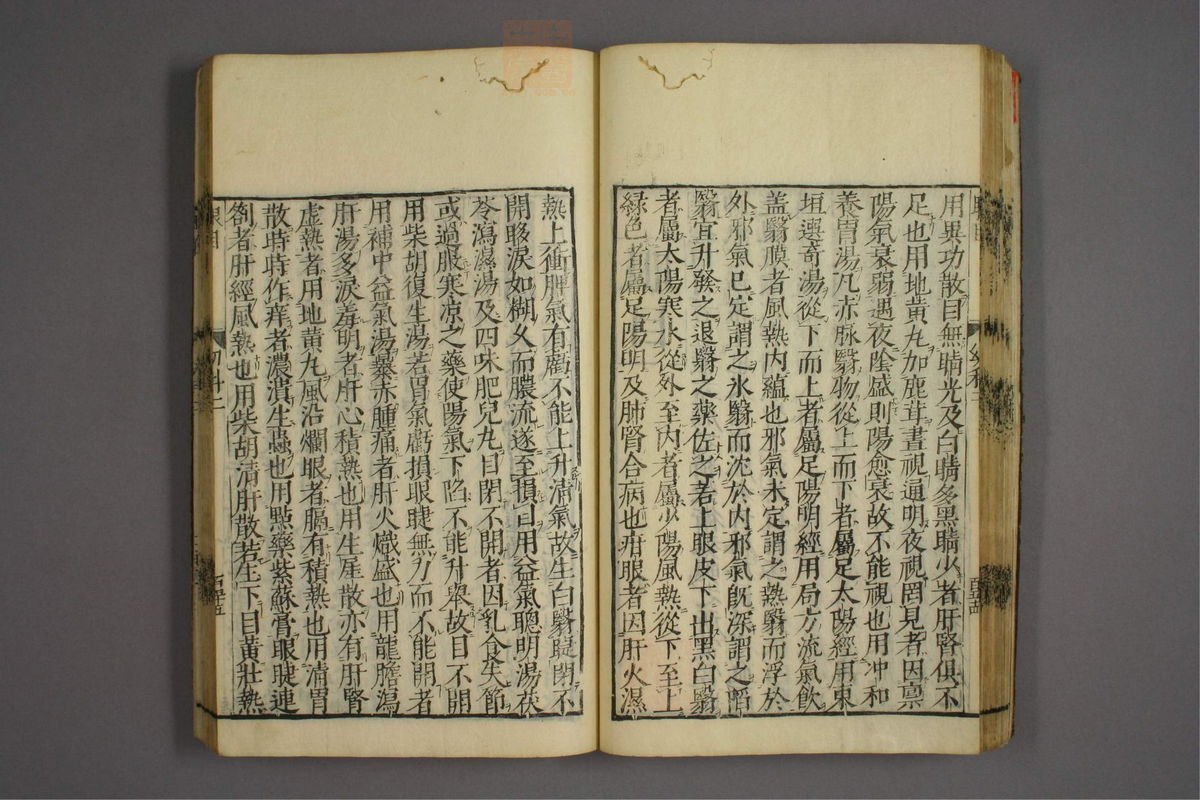 用異功散目無睛光及白睛多黑睛少者肝腎俱不
足也用地黃丸加鹿茸晝視通明夜視罔見者因稟
陽氣衰弱遇夜陰盛則陽愈衰故不能視也用冲和
養胃湯凡赤脉翳物從上而下者屬足太陽經用東
垣選奇湯從下而上者屬足陽明經用局方流氣飲
盖翳膜者風熱内蘊也邪氣未定謂之熱翳而浮於
外邪氣已定謂之氷翳而沈於内邪氣旣深謂之陷
翳宜升發之退翳之藥佐之若上眼皮下出黑白翳
者屬太陽寒水從外至内者屬少陽風熱從下至上
緑色者屬足陽明及肺腎合病也疳眼者因肝火濕
熱上衝脾氣有虧不能上升清氣故生白翳睫閉不
開眵淚如糊久而膿流遂至損目用益氣聰明湯茯
苓瀉濕湯及四味肥兒丸目閉不開者因乳食失節
或過服寒凉之藥使陽氣下陷不能升舉故目不開
用柴胡復生湯若胃氣虧損眼睫無力而不能開者
用補中益氣湯暴赤腫痛者肝火熾盛也用龍膽瀉
肝湯多淚羞明者肝心積熱也用生犀散亦有肝腎
虚熱者用地黃丸風沿爛眼者膈有積熱也用清胃
散時時作痒者濃潰生蟲也用點藥紫蘇膏眼睫連
劄者肝經風熱也用柴胡清肝散若生下目黃壯熱
眼目
幼科二